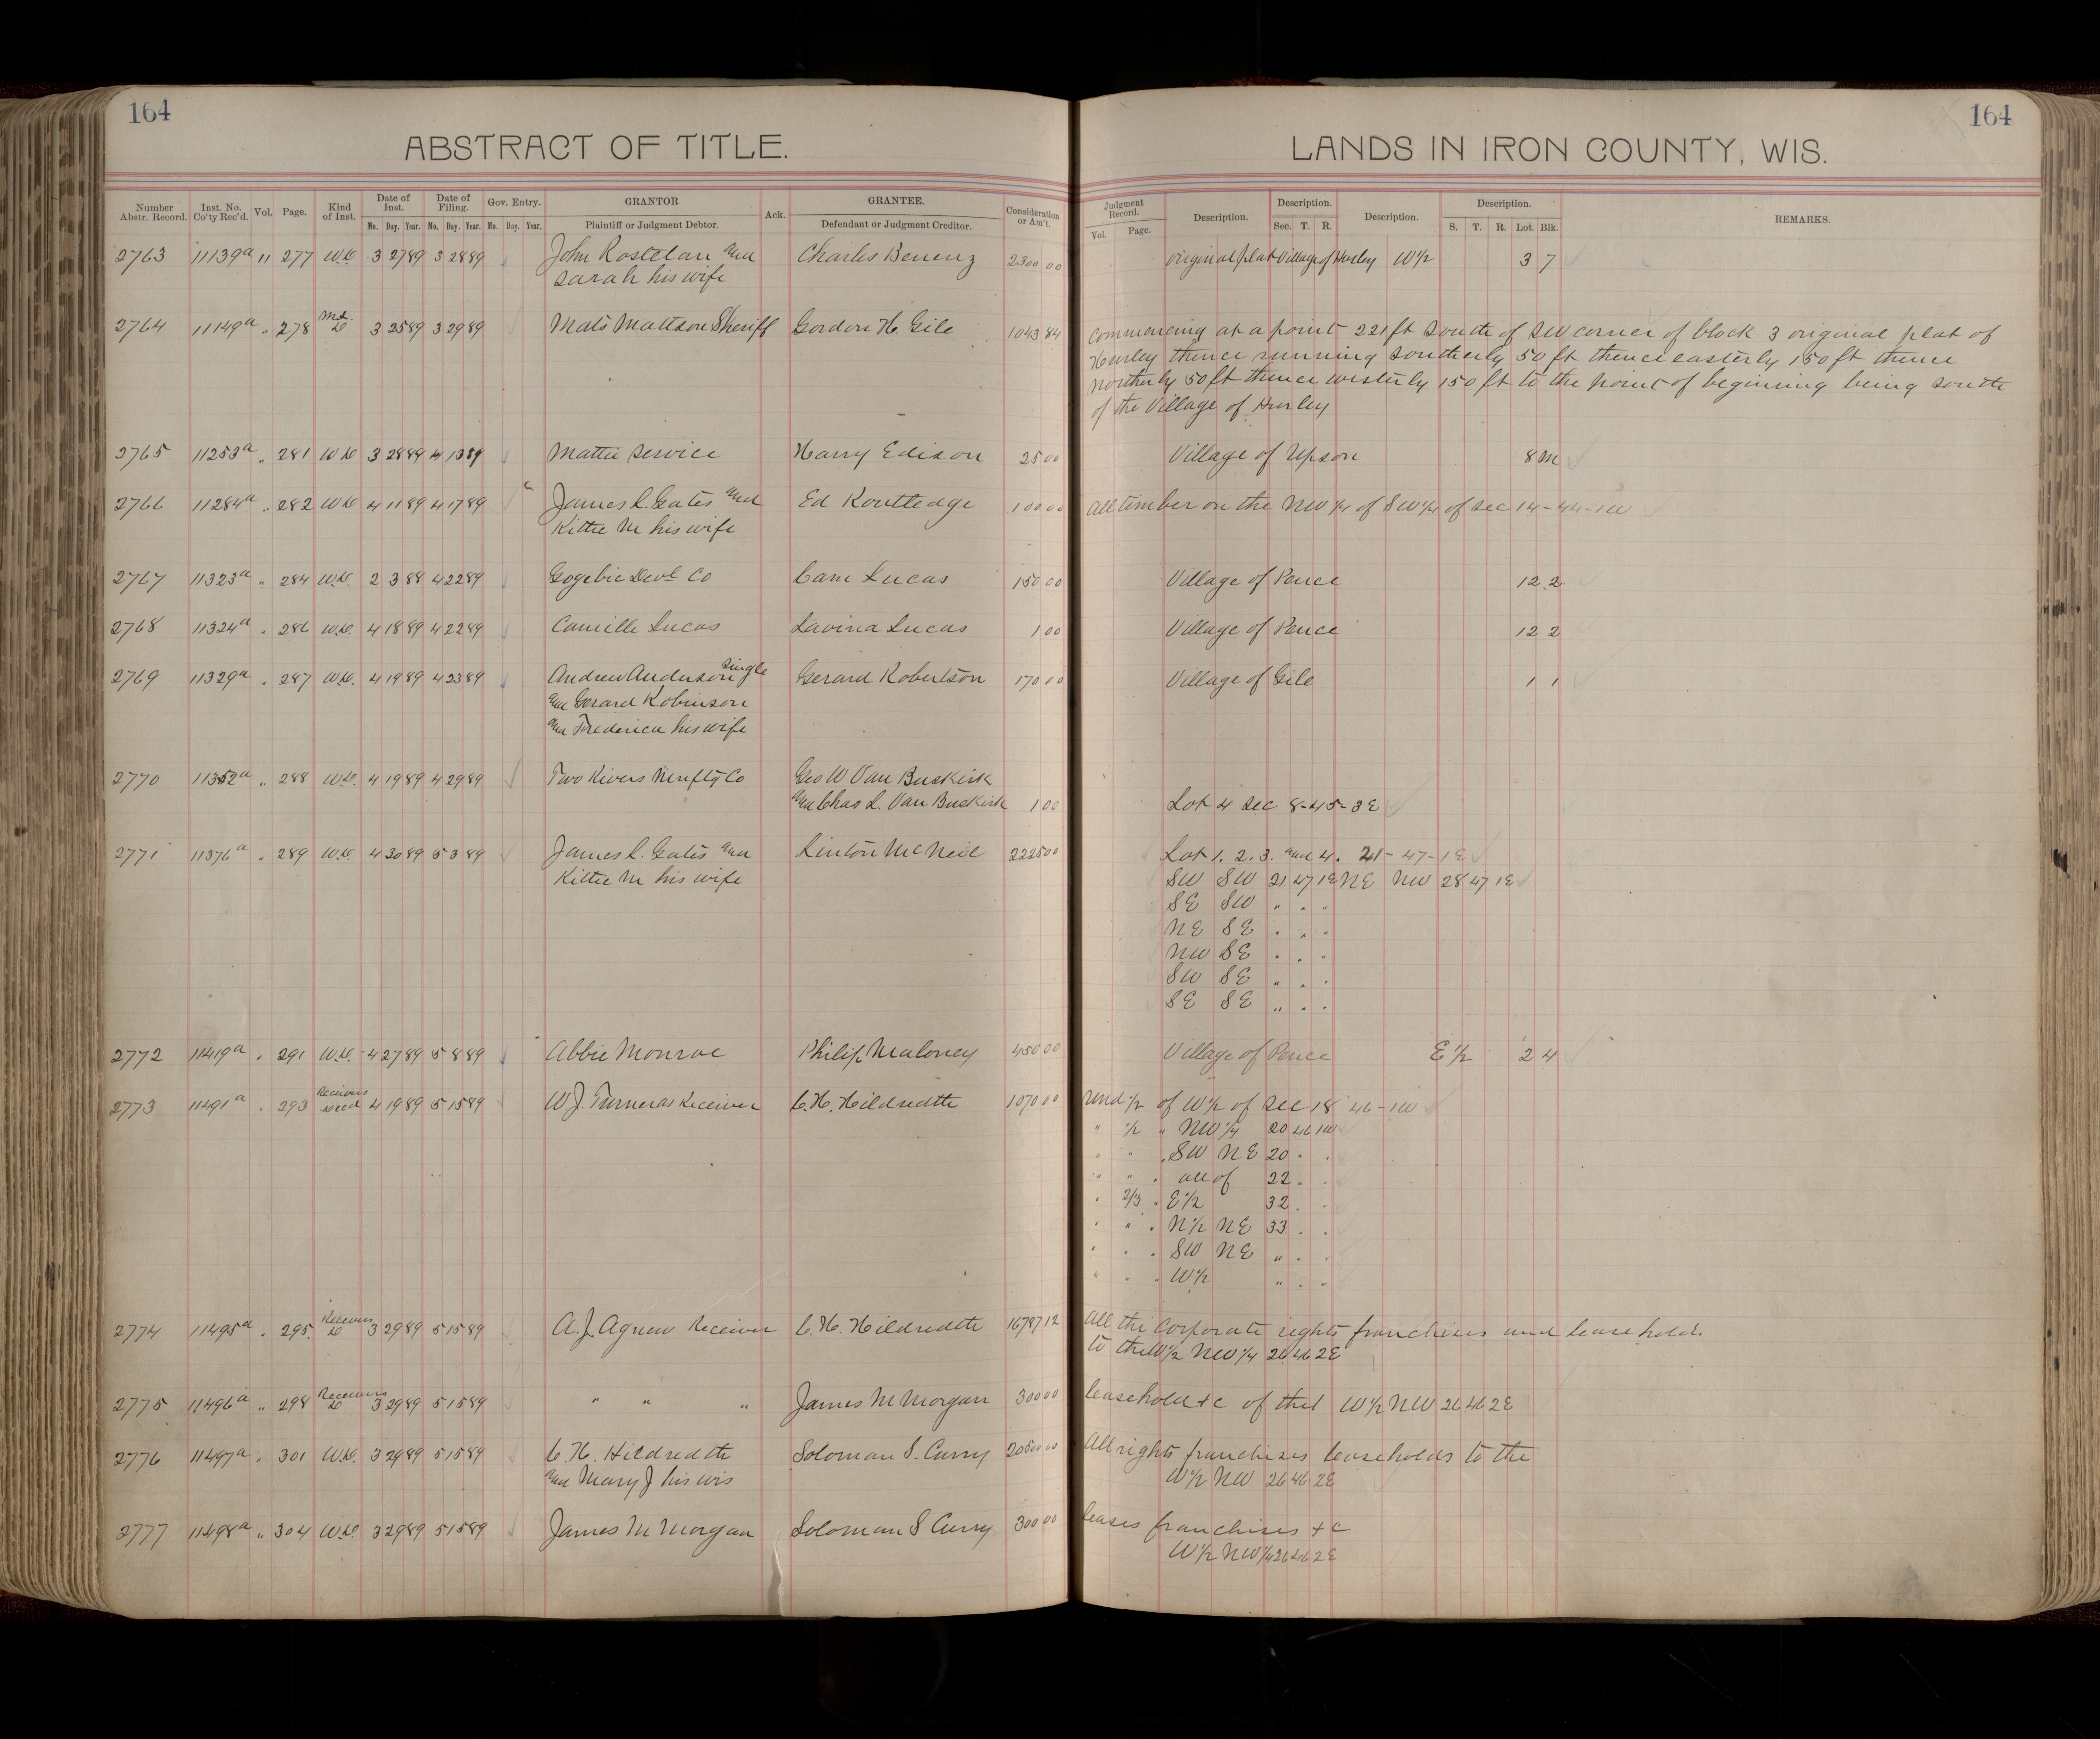 164
164
ABSTRACT OF TITLE.
LANDS IN IRON COUNTY, WIS.
Number Abstr. Record. Inst. No. Co'ty Rec'd. Vol. Page. Kind of Inst. Date of Inst. Mo. Day. Year. Date of Filing. Mo. Day. Year. Gov. Entry. Mo. Day. Year. GRANTOR Plaintiff or Judgment Debtor. Ack. GRANTEE. Defendant or Judgment Creditor. Consideration or Am't. Judgment Record. Vol. Page. Description. Description. Sec. T. R. Description. Description. S. T. R. Lot. Blk. REMARKS.
2763 11139a 11 277 W.D. 3 27 89 3 28 89 John Rostelan and Charles Benenz 2300 00 original plat Village of Hurley W½ 3 7
Sarah his wife
2764 11149a " 278 D 3 25 89 3 29 89 Mats Mattson Sheriff Gordon H. Gile 1043 84 Commencing at a point 221 ft South of SW corner of block 3 original plat of
Hurley thence running Southerly 50 ft thence easterly 150 ft thence
northerly 50 ft thence westerly 150 ft to the point of beginning being south
of the Village of Hurley
2765 11253a " 281 W D 3 28 89 4 13 89 Mattie Service Harry Edison 25 00 Village of Upson 8 M
2766 11284a " 282 W D 4 11 89 4 17 89 James L. Gates and Ed Routledge 100 00 All timber on the NW ¼ of SW ¼ of Sec 14-44-1W
Kittie M his wife
2767 11323a " 284 W.D. 2 3 88 4 22 89 Gogebic Devl. Co Cam Lucas 150 00 Village of Pence 12 2
2768 11324a " 286 W.D. 4 18 89 4 22 89 Camille Lucas Lavina Lucas 1 00 Village of Pence 12 2
2769 11329a " 287 W.D. 4 19 89 4 23 89 Andrew Anderson Single Gerard Robertson 170 00 Village of Gile 1 1
and Gerard Robinson
and Frederica his wife
2770 11352a " 288 W.D. 4 19 89 4 29 89 Two Rivers Mnftg Co Geo W Van Buskirk
and Chas L. Van Buskirk 1 00 Lot 4 Sec 8-45-3E
2771 11376a " 289 W.D. 4 30 89 5 3 89 James L. Gates and Linton McNeil 2225 00 Lot 1. 2. 3. and 4. 21-47-1E
Kittie M his wife SW SW 21 47 1E NE NW 28 47 1E
SE SW " " "
NE SE " " "
NW SE " " "
SW SE " " "
SE SE " " "
2772 11419a " 291 W.D. 4 27 89 5 8 89 Abbie Monroe Philip Maloney 450 00 Village of Pence E½ 2 4
2773 11491a " 293 Receivers deed 4 19 89 5 15 89 W.J. Turner as Receiver C.H. Hildredth 1070 00 und ½ of W½ of Sec 18 46-1W
" ½ " NW ¼ 20 46 1W
" " " SW NE 20 " "
" " " all of 22 " "
" 2/3 " E½ 32 " "
" " " N½ NE 33 " "
" " " SW NE " " "
" " " W½ " " "
2774 11495a " 295 Receivers D 3 29 89 5 15 89 A.J. Agnew Receiver C.H. Hildredth 16787 12 All the Corporate rights franchises and leaseholds
to the W½ NW ¼ 26 46 2E
2775 11496a " 298 Receivers D 3 29 89 5 15 89 " " " James M Morgan 300 00 leasehold &c of the W½ NW 26 46 2E
2776 11497a " 301 W.D. 3 29 89 5 15 89 C.H. Hildredth Soloman S. Curry 20500 00 All rights franchises leaseholds to the
and Mary J his wis W½ NW 26 46 2E
2777 11498a " 304 W.D. 3 29 89 5 15 89 James M Morgan Soloman S Curry 300 00 leases franchises &c
W½ NW ¼ 26 46 2E